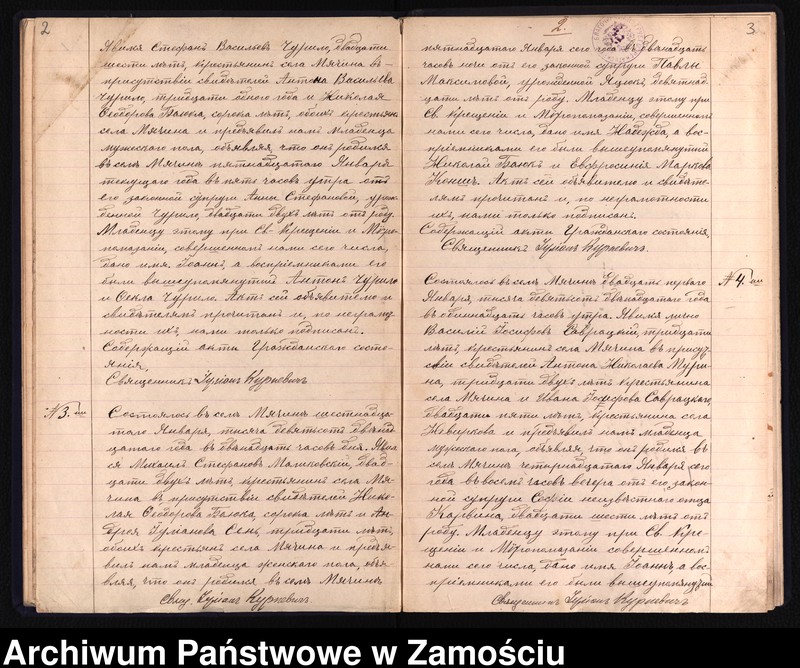 2
Явился Стефанъ Васильевъ Чурило, двадцати
шести лѣтъ, крестьянинъ села Мячина въ
присутствіи свидѣтелей Антона Васильева
Чурило, тридцати одного года и Николая
Ѳеодорова Банька, сорока лѣтъ, обоихъ крестьянъ
села Мячина и предъявилъ намъ младенца
мужескаго пола, объявляя, что онъ родился
въ селѣ Мячинѣ пятнадцатаго Января
текущаго года въ пять часовъ утра отъ
его законной супруги Анны Стефановой, урож-
денной Чурило, двадцати двухъ лѣтъ отъ роду.
Младенцу этому при Св. Крещеніи и Мѵро-
помазаніи, совершенномъ нами сего числа,
дано имя Іоаннъ, а воспріемниками его
были вышеупомянутый Антонъ Чурило
и Ѳекла Чурило. Актъ сей объявителю и
свидѣтелямъ прочитанъ и, по неграмот-
ности ихъ, нами только подписанъ.
Содержащій акты Гражданскаго состо-
янія,
Священникъ Іуліанъ Куркевичъ
№ 3.
Состоялось въ селѣ Мячинѣ шестнадца-
таго Января, тысяча девятьсотъ двѣнад-
цатаго года въ двѣнадцать часовъ дня. Явил-
ся Михаилъ Стефановъ Малиновскій, двад-
цати двухъ лѣтъ, крестьянинъ села Мя-
чина въ присутствіи свидѣтелей Нико-
лая Ѳеодорова Банька, сорока лѣтъ и Ан-
дрея Сень, тридцати лѣтъ,
обоихъ крестьянъ села Мячина и предъя-
вилъ намъ младенца женскаго пола, объя-
вляя, что онъ родился въ селѣ Мячинѣ
Свящ. Іуліанъ Куркевичъ.
2.
3
пятнадцатаго Января сего года въ двѣнадцать
часовъ ночи отъ его законной супруги Павлы
Максимовой, урожденной Яцюкъ, девятнад-
цати лѣтъ отъ роду. Младенцу этому при
Св. Крещеніи и Мѵропомазаніи, совершенномъ
нами сего числа, дано имя Надежда, а вос-
пріемниками его были вышеупомянутый
Николай Банькъ и Евфросинія Маркова
Актъ сей объявителю и свидѣте-
лямъ прочитанъ и, по неграмотности
ихъ, нами только подписанъ.
Содержащій акты Гражданскаго состоянія,
Священникъ Іуліанъ Куркевичъ.
№ 4.
Состоялось въ селѣ Мячинѣ двадцать перваго
Января, тысяча девятьсотъ двѣнадцатаго года
въ одиннадцать часовъ утра. Явился лично
Василій Іосифовъ Саврацкій, тридцати
лѣтъ, крестьянинъ села Мячина въ присут-
ствіи свидѣтелей Антона Николаева Мури-
на, тридцати двухъ лѣтъ крестьянина
села Мячина и Ивана Іосифова Саврацкаго,
двадцати пяти лѣтъ, крестьянина села
Невиркова и предъявилъ намъ младенца
мужескаго пола, объявляя, что онъ родился въ
селѣ Мячинѣ четырнадцатаго Января сего
года въ восемь часовъ вечера отъ его закон-
ной супруги Софіи неизвѣстнаго отца
двадцати шести лѣтъ отъ
роду. Младенцу этому при Св. Кре-
щеніи и Мѵропомазаніи совершенномъ
нами сего числа, дано имя Іоаннъ, а вос-
пріемниками его были вышеупомянутый
Священникъ Іуліанъ Куркевичъ
Archiwum Państwowe w Zamościu